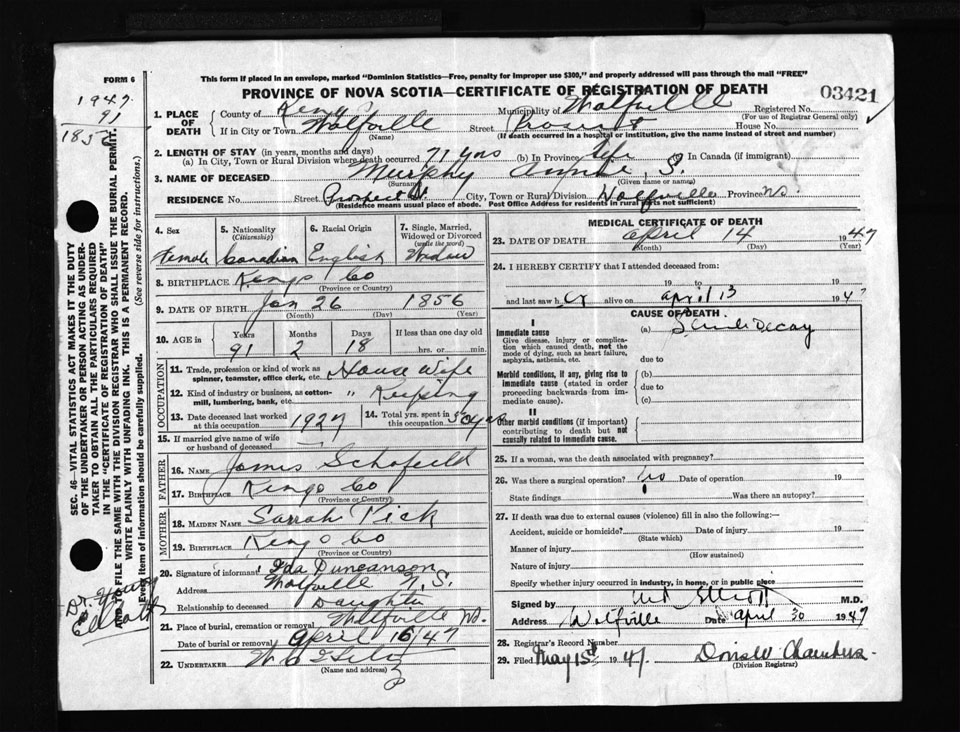 FORM 6
This form if placed in an envelope, marked "Dominion Statistics—Free, penalty for improper use $300," and properly addressed will pass through the mail "FREE"
PROVINCE OF NOVA SCOTIA—CERTIFICATE OF REGISTRATION OF DEATH
03421
1947
91
1856
1. PLACE OF DEATH
County of Kings Municipality of Wolfville Registered No.
(For use of Registrar General only)
If in City or Town Wolfville Street Prospect House No.
(Name) (If death occurred in a hospital or institution, give the name instead of street and number)
2. LENGTH OF STAY (in years, months and days)
(a) In City, Town or Rural Division where death occurred 71 yrs (b) In Province Life (c) In Canada (if immigrant)
3. NAME OF DECEASED Murphy Annie S.
(Surname) (Given name or names)
RESIDENCE No. Street Prospect St. City, Town or Rural Division Wolfville Province NS.
(Residence means usual place of abode. Post Office Address for residents in rural parts not sufficient)
4. Sex 5. Nationality (Citizenship) 6. Racial Origin 7. Single, Married, Widowed or Divorced (write the word)
Female Canadian English Widow
8. BIRTHPLACE Kings Co
(Province or Country)
9. DATE OF BIRTH Jan 26 1856
(Month) (Day) (Year)
10. AGE in Years Months Days If less than one day old
91 2 18 hrs. or min.
OCCUPATION
11. Trade, profession or kind of work as spinner, teamster, office clerk, etc. House Wife
12. Kind of industry or business, as cotton-mill, lumbering, bank, etc. " Keeping
13. Date deceased last worked at this occupation 1927 14. Total yrs. spent in this occupation 50 yrs
15. If married give name of wife or husband of deceased
FATHER
16. NAME James Schofield
17. BIRTHPLACE Kings Co
(Province or Country)
MOTHER
18. MAIDEN NAME Sarrah Kick
19. BIRTHPLACE Kings Co
(Province or Country)
20. Signature of informant Ida Duncanson
Address Wolfville N.S.
Relationship to deceased Daughter
21. Place of burial, cremation or removal Wolfville NS.
Date of burial or removal April 16/47
22. UNDERTAKER
(Name and address)
MEDICAL CERTIFICATE OF DEATH
23. DATE OF DEATH April 14 1947
(Month) (Day) (Year)
24. I HEREBY CERTIFY that I attended deceased from:
19 to 19
and last saw her alive on april 13 1947
CAUSE OF DEATH
I
Immediate cause
Give disease, injury or complication which caused death, not the mode of dying, such as heart failure, asphyxia, asthenia, etc.
(a) Senile Decay
due to
Morbid conditions, if any, giving rise to immediate cause (stated in order proceeding backwards from immediate cause).
(b)
due to
(c)
II
Other morbid conditions (if important) contributing to death but not causally related to immediate cause.
25. If a woman, was the death associated with pregnancy?
26. Was there a surgical operation? no Date of operation 19
State findings Was there an autopsy?
27. If death was due to external causes (violence) fill in also the following:—
Accident, suicide or homicide? Date of injury 19
(State which)
Manner of injury
(How sustained)
Nature of injury
Specify whether injury occurred in industry, in home, or in public place
Signed by Elliott M.D.
Address Wolfville Date april 30 1947
28. Registrar's Record Number
29. Filed May 15th 1947. Doris W Chambers
(Division Registrar)
SEC. 46—VITAL STATISTICS ACT MAKES IT THE DUTY OF THE UNDERTAKER OR PERSON ACTING AS UNDERTAKER TO OBTAIN ALL THE PARTICULARS REQUIRED IN THE "CERTIFICATE OF REGISTRATION OF DEATH" AND FILE THE SAME WITH THE DIVISION REGISTRAR WHO SHALL ISSUE THE BURIAL PERMIT.
WRITE PLAINLY WITH UNFADING INK. THIS IS A PERMANENT RECORD.
Every item of information should be carefully supplied. (See reverse side for instructions.)
Dr.